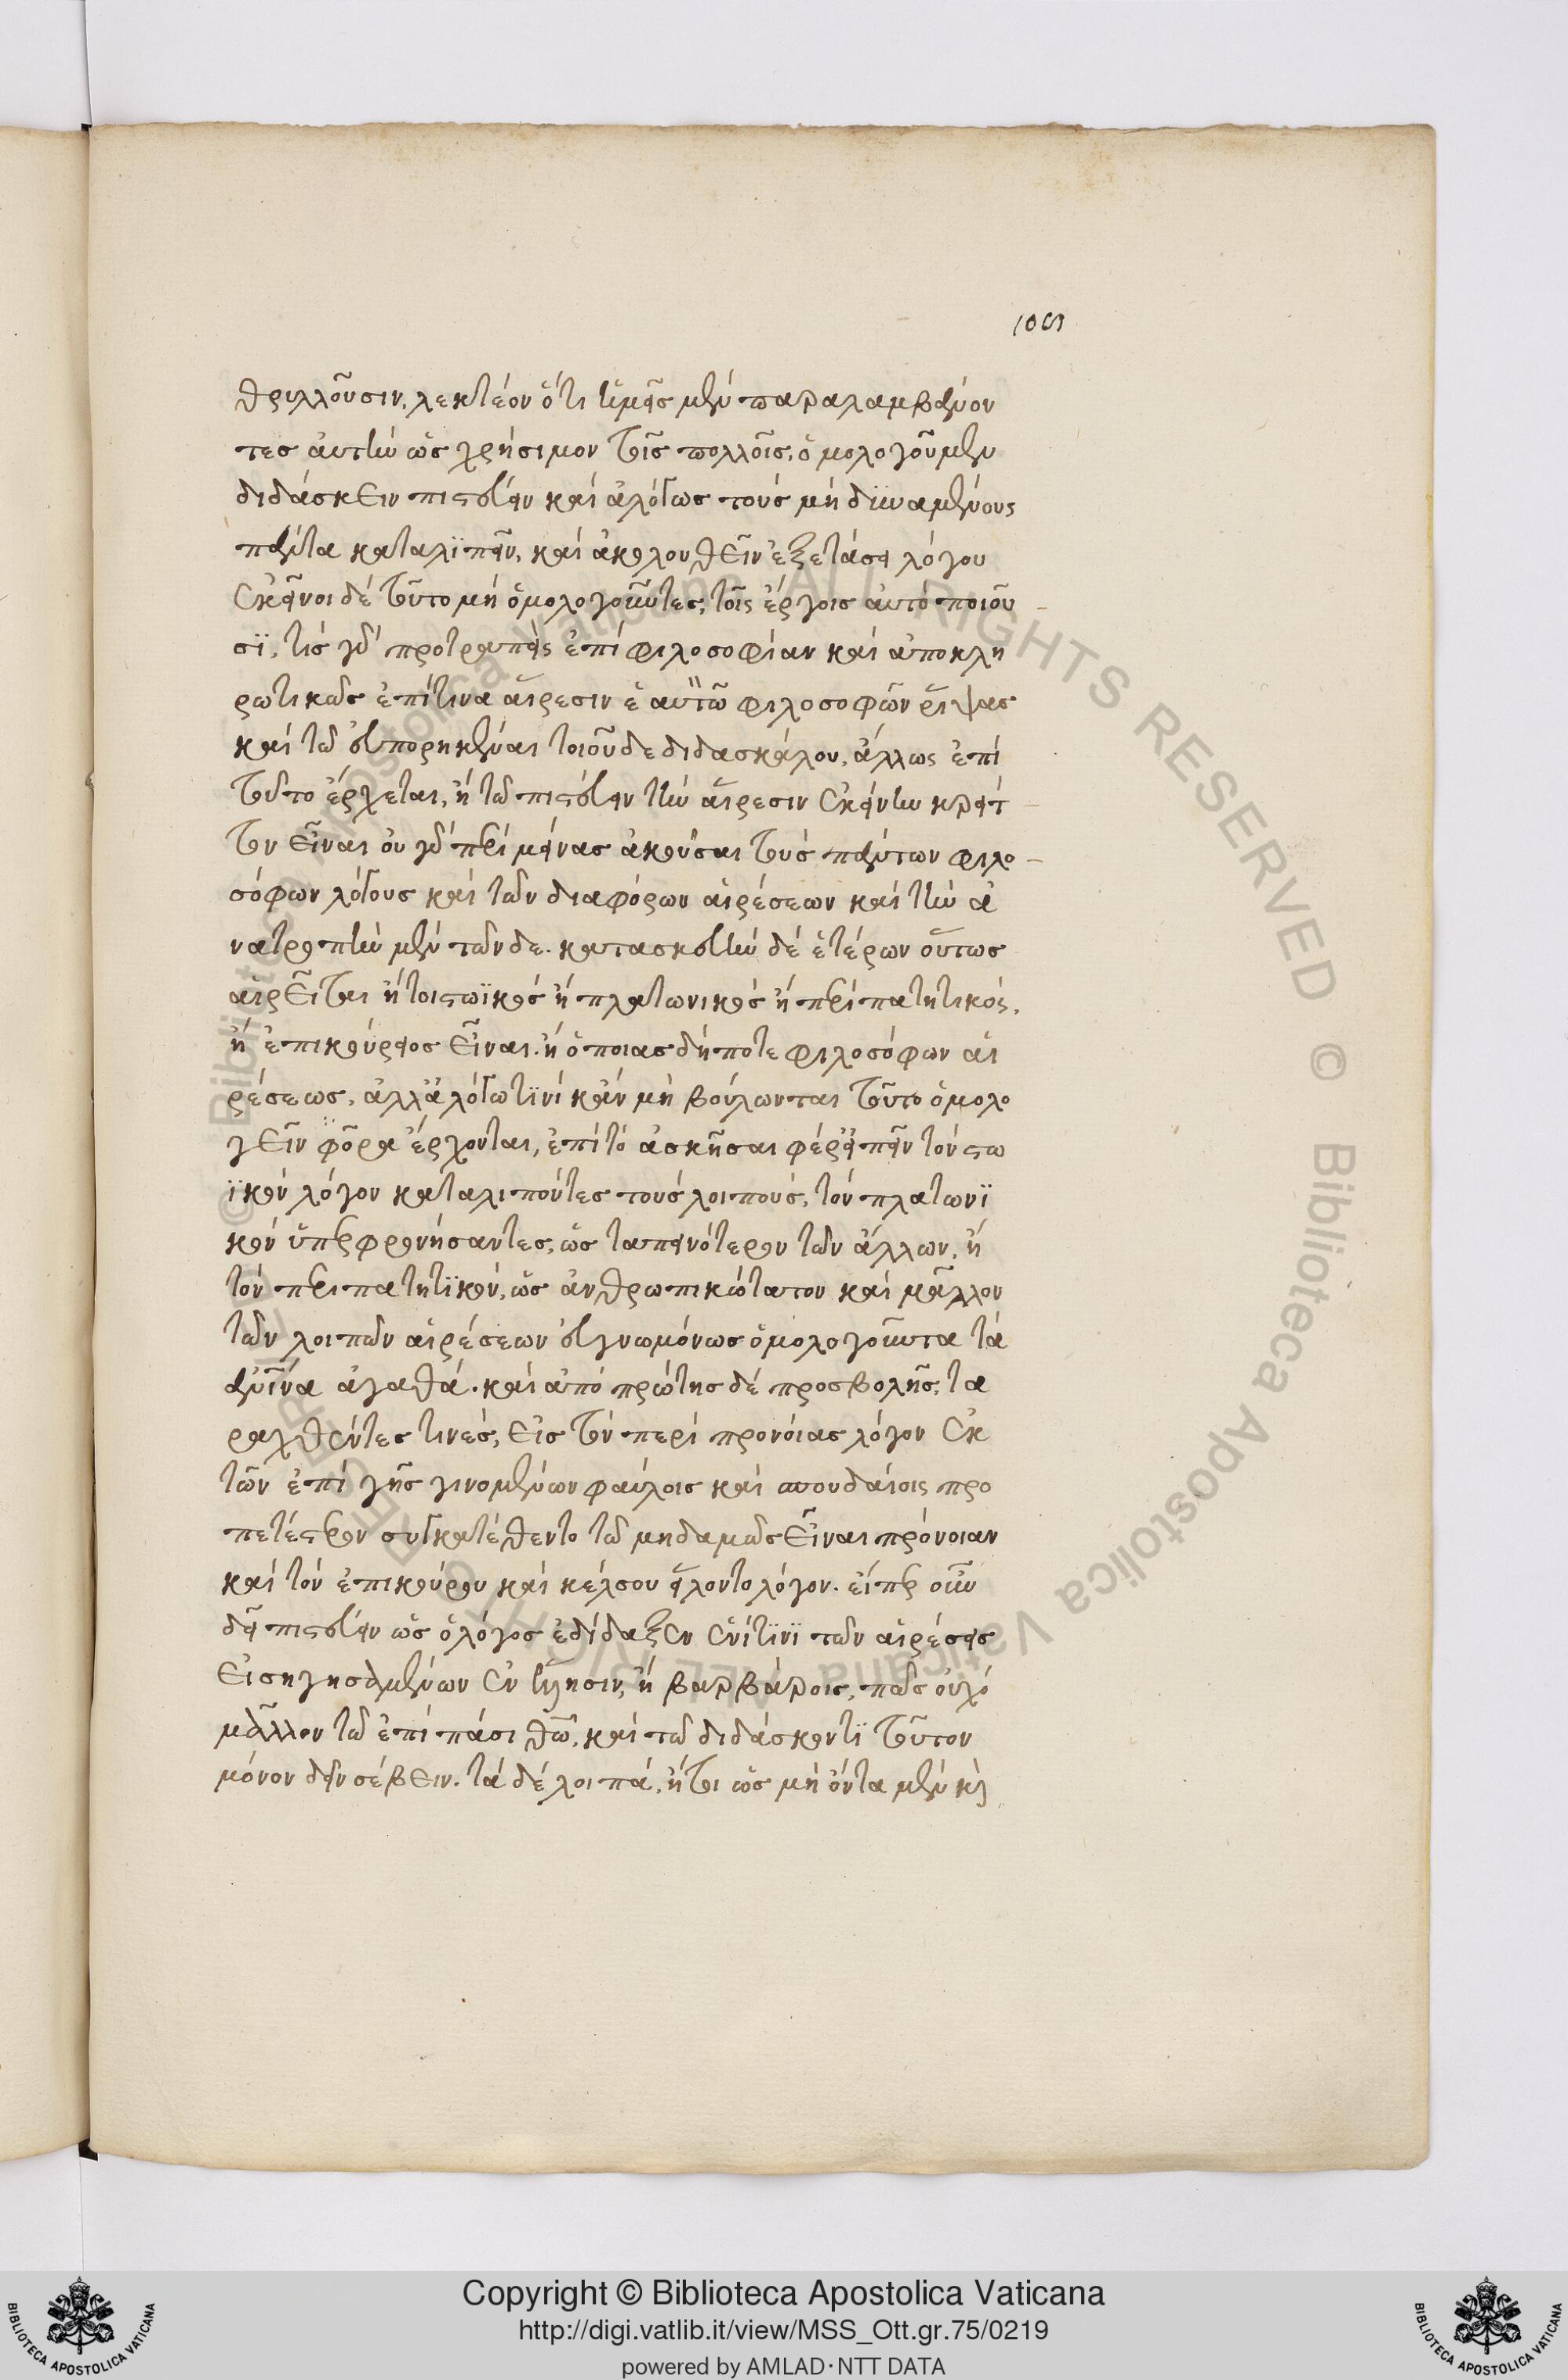 105
θρυλλοῦσιν, λεκτέον ὅτι ἡμεῖς μὲν παραλαμβάνον
τες αὐτὴν ὡς χρήσιμον τοῖς πολλοῖς, ὁμολογοῦμεν
διδάσκειν πιστεύειν καὶ ἀλόγως τοὺς μὴ δυναμένους
πάντα καταλιπεῖν, καὶ ἀκολουθεῖν ἐξετάσει λόγου
ἐκεῖνοι δὲ τοῦτο μὴ ὁμολογοῦντες, τοῖς ἔργοις αὐτὸ ποιοῦ
σϊ, τίς γὰρ προτραπεὶς ἐπὶ φιλοσοφίαν καὶ ἀποκλη
ρωτικῶς ἐπί τινα αἵρεσιν ἑαυτῶ φιλοσοφῶν ῥίψας
καὶ τῶ εὐπορηκέναι τοιοῦδε διδασκάλου, ἄλλως ἐπὶ
τοῦτο ἔρχεται, ἢ τῶ πιστεύειν τὴν αἵρεσιν ἐκείνην κρείτ
τον εἶναι οὐ γὰρ περιμείνας ἀκοῦσαι τοὺς πάντων φιλο
σόφων λόγους καὶ τῶν διαφόρων αἱρέσεων καὶ τὴν ἀ
νατροπὴν μὲν τῶνδε. κατασκευὴν δὲ ἑτέρων οὕτως
αἱρεῖται ἤτοι στωϊκὸς ἢ πλατωνικὸς ἢ περιπατητικός,
ἢ ἐπικούρειος εἶναι. ἢ ὁποιασδήποτε φιλοσόφων αἱ
ρέσεως, ἀλλ' ἀλόγω τϊνὶ κἂν μὴ βούλωνται τοῦτο ὁμολο
γεῖν φορᾶ ἔρχονται, ἐπὶ τὸ ἀσκῆσαι φέρ' εἰπεῖν τὸν στω
ϊκὸν λόγον καταλιπόντες τοὺς λοιπούς, τὸν πλατωνϊ
κὸν ὑπερφρονήσαντες, ὡς ταπεινότερον τῶν ἄλλων, ἢ
τὸν περιπατητϊκόν, ὡς ἀνθρωπικώτατον καὶ μᾶλλον
τῶν λοιπῶν αἱρέσεων εὐγνωμόνως ὁμολογοῦντα τὰ
ἀνϊνα ἀγαθά. καὶ ἀπὸ πρώτης δὲ προσβολῆς, τα
ραχθέντες τινές, εἰς τὸν περὶ προνοίας λόγον ἐκ
τῶν ἐπὶ γῆς γινομένων φαύλοις καὶ σπουδαίοις προ
πετέστερον συγκατέθεντο τῶ μηδαμῶς εἶναι πρόνοιαν
καὶ τὸν ἐπικούρου καὶ κέλσου εἵλοντο λόγον. εἴπερ οὖν
δεῖ πιστεύειν ὡς ὁ λόγος ἐδίδαξεν ἑνί τϊνϊ τῶν αἱρέσεις
εἰσηγησαμένων ἐν ἕλλησιν, ἢ βαρβάροις, πῶς οὐχὶ
μᾶλλον τῶ ἐπὶ πάσι θω, καὶ τῶ διδάσκοντϊ τοῦτον
μόνον δεῖν σέβειν. τὰ δὲ λοιπά, ἤτοι ὡς μὴ ὄντα μὲν κὴ
Copyright © Biblioteca Apostolica Vaticana
http://digi.vatlib.it/view/MSS_Ott.gr.75/0219
powered by AMLAD·NTT DATA
BIBLIOTECA APOSTOLICA VATICANA
BIBLIOTECA APOSTOLICA VATICANA
© Biblioteca Apostolica Vaticana ALL RIGHTS RESERVED © Biblioteca Apostolica Vaticana ALL RIGHTS RESERVED